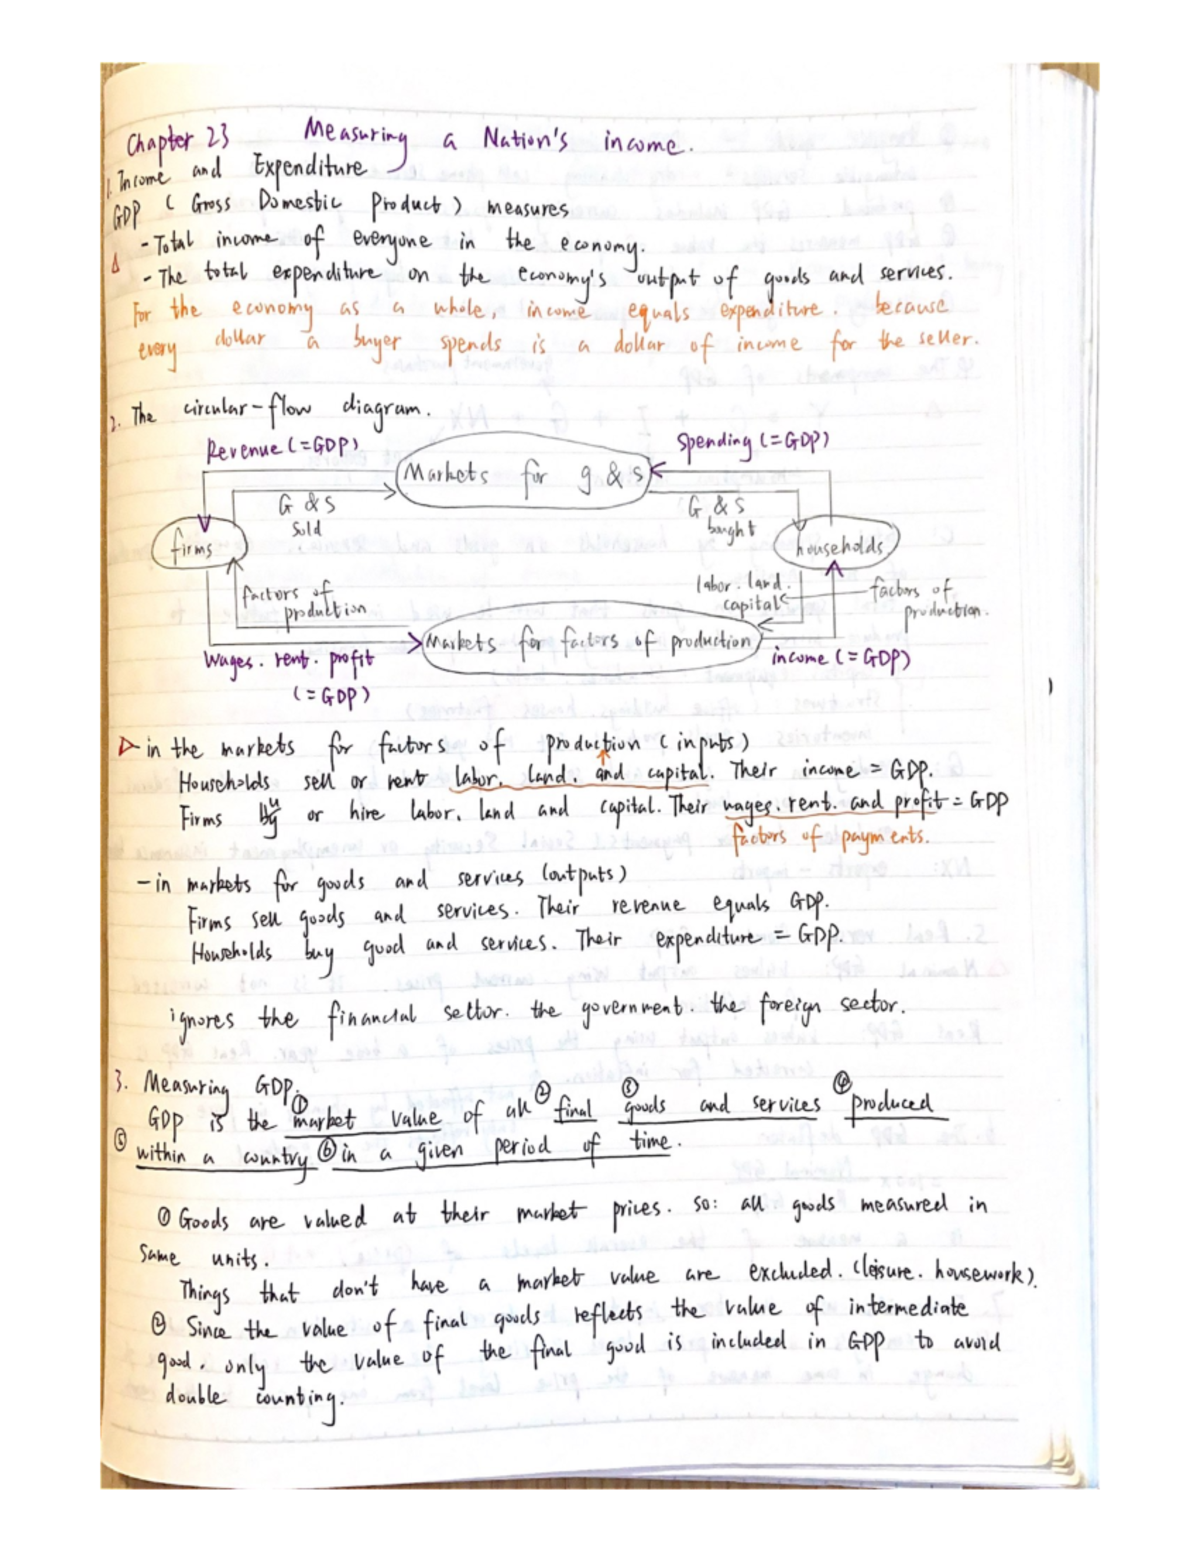 Chapter 23 Measuring a Nation's income.
1. Income and Expenditure
GDP ( Gross Domestic Product ) measures
- Total income of everyone in the economy.
- The total expenditure on the economy's output of goods and services.
For the economy as a whole, income equals expenditure. because
every dollar a buyer spends is a dollar of income for the seller.
2. The circular-flow diagram.
Revenue (=GDP)
Spending (=GDP)
Markets for g & s
G & S
sold
G & S
bought
firms
households
factors of
production
labor. land.
capital
factors of
production.
Markets for factors of production
Wages. rent. profit
(=GDP)
income (=GDP)
in the markets for factors of production (inputs)
Households sell or rent labor, land, and capital. Their income = GDP.
Firms buy or hire labor, land and capital. Their wages. rent. and profit = GDP
factors of payments.
- in markets for goods and services (outputs)
Firms sell goods and services. Their revenue equals GDP.
Households buy good and services. Their expenditure = GDP.
ignores the financial sector. the government. the foreign sector.
3. Measuring GDP.
GDP is the ① market value of all ② final ③ goods and services ④ produced
⑤ within a country ⑥ in a given period of time.
① Goods are valued at their market prices. so: all goods measured in
same units.
Things that don't have a market value are excluded. (leisure. housework).
② Since the value of final goods reflects the value of intermediate
good. only the value of the final good is included in GDP to avoid
double counting.